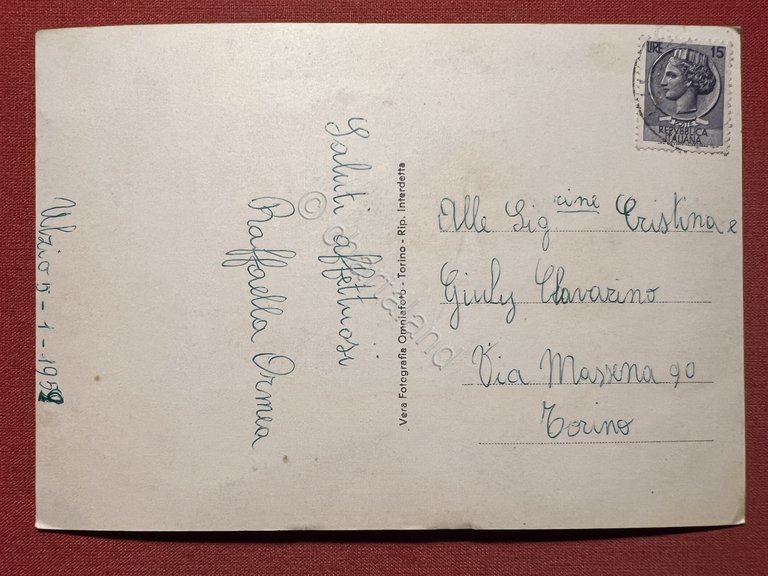 Ulzio 5-1-1959
Saluti affettuosi
Raffaella Ormea
Vera Fotografia Omniafoto - Torino - Rip. Interdetta
LIRE 15
POSTE
REPVBBLICA
ITALIANA
Alle Sig.rine Cristina e
Giuly Clavarino
Via Massena 90
Torino
© delegaland